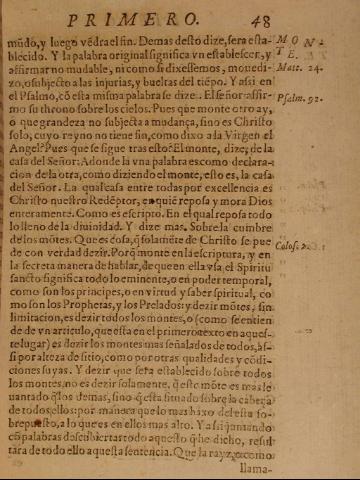 PRIMERO. 48
mũdo, y luego vẽdra el fin. Demas desto dize, sera esta-
blecido. Y la palabra original significa vn establescer, y
affirmar no mudable, ni como si dixessemos, mouedi-
zo, o subjecto a las injurias, y bueltas del tiẽpo. Y assi en
el Psalmo, cõ esta misma palabra se dize. El señor affir-
mo su throno sobre los cielos. Pues que monte otro ay,
o que grandeza no subjecta a mudança, sino es Christo
solo, cuyo reyno no tiene fin, como dixo a la Virgen el
Angel? Pues que se sigue tras esto? El monte, dize, de la
casa del Señor: Adonde la vna palabra es como declara-
cion de la otra, como diziendo el monte, esto es, la casa
del Señor. La qual casa entre todas por excellencia es
Christo nuestro Redẽptor, en quiẽ reposa y mora Dios
enteramente. Como es escripto. En el qual reposa todo
lo lleno de la diuinidad. Y dize mas. Sobre la cumbre
de los mõtes. Que es cosa, q̃ solamẽte de Christo se pue
de con verdad dezir. Porq̃ monte en la escriptura, y en
la secreta manera de hablar, de que en ella vsa el Spiritu
sancto significa todo lo eminente, o en poder temporal,
como son los principes, o en virtud y saber spiritual, co
mo son los Prophetas, y los Prelados: y dezir mõtes, sin
limitacion, es dezir todos los montes, o (como se entien
de de vn articulo, que esta en el primero texto en aques-
te lugar) es dezir los montes mas señalados de todos, as-
si por alteza de sitio, como por otras qualidades y cõdi-
ciones suyas. Y dezir que sera establecido sobre todos
los montes, no es dezir solamente, q̃ este mõte es mas le
uantado q̃ los demas, sino q̃ esta situado sobre la cabeça
de todos ellos: por manera que lo mas baxo del esta so-
brepuesto, a lo que es en ellos mas alto. Y assi juntando
cõ palabras descubiertas todo aquesto q̃ he dicho, resul
tara de todo ello aquesta sentencia. Que la rayz, o como
llama-
MON-
TE.
Matt. 24.
Psalm. 92.
Colos. 2.